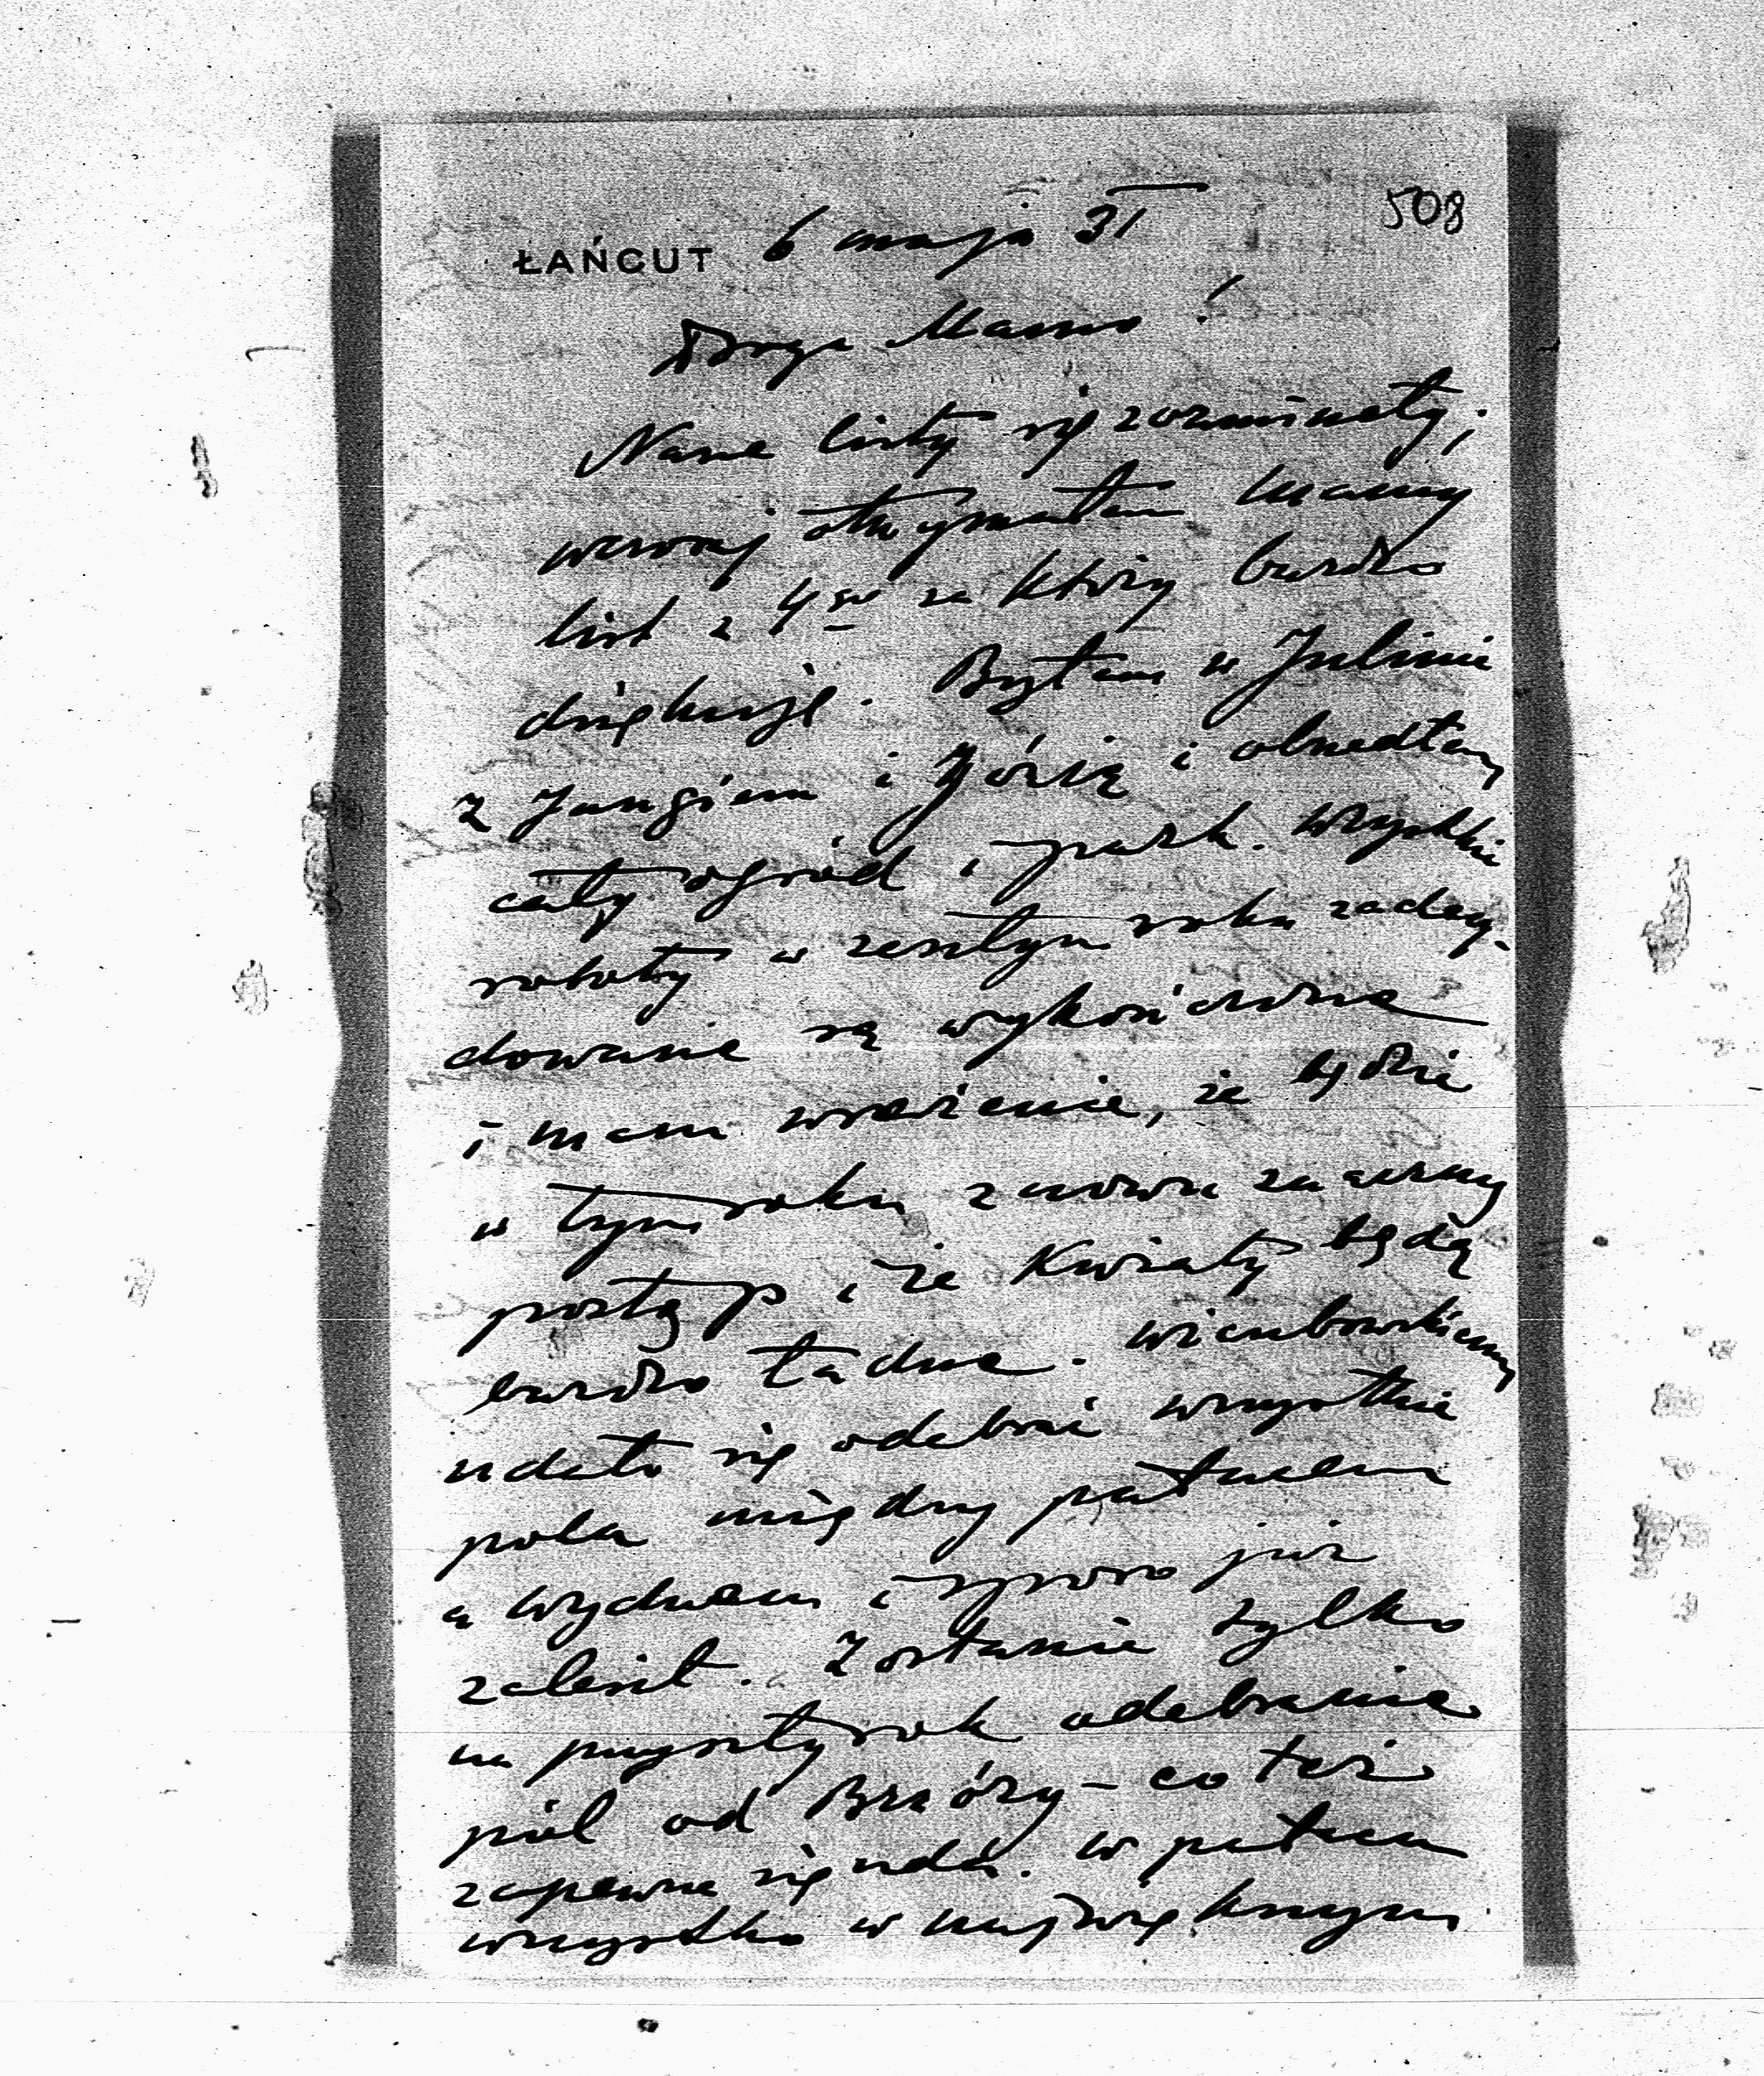 508
ŁAŃCUT 6 maja 31
Droga Mamo!
Nasze listy się rozminęły;
wczoraj otrzymałam Mamy
list z 4go za który bardzo
dziękuję. Byłam w Julinie
z Jungiem i Józią i obszedłam
cały ogród i park. Wszystkie
roboty w zeszłym roku zadecy-
dowane są wykończone
i mam wrażenie, że będzie
w tym roku znowu znaczny
postęp i że kwiaty będą
bardzo ładne.
udało się odebrać wszystkie
pola między pałacem
a wydmem i sporo już
zalesił. Zostanie tylko
na przyszły rok odebranie
pól od Brzózy – co też
zapewne się uda. W pałacu
wszystko w największym